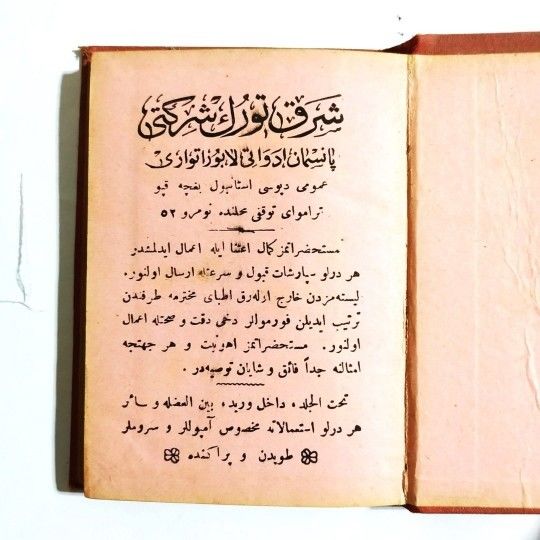 شرق تورك شركتى
پانسمان ادواتى لابوراتوارى
عمومى دپوسى استانبول بغچه قپو
تراموای توقفى محلنده نومرو ٥٢
مستحضراتمز كمال اعتنا ايله اعمال ايدلمشدر
هر درلو سپارشات قبول و سرعتله ارسال اولنور.
ليسته مزدن خارج اوله رق اطباى محترمه طرفندن
ترتيب ايديلن فورموللر دخى دقت و صحتله اعمال
اولنور. مستحضراتمز اهونيت و هر جهتجه
امثالنه جداً فائق و شايان توصيه در.
تحت الجلد، داخل وريد، بين العضله و سائر
هر درلو استعمالاته مخصوص آمپوللر و سروملر
طوپدن و پراكنده